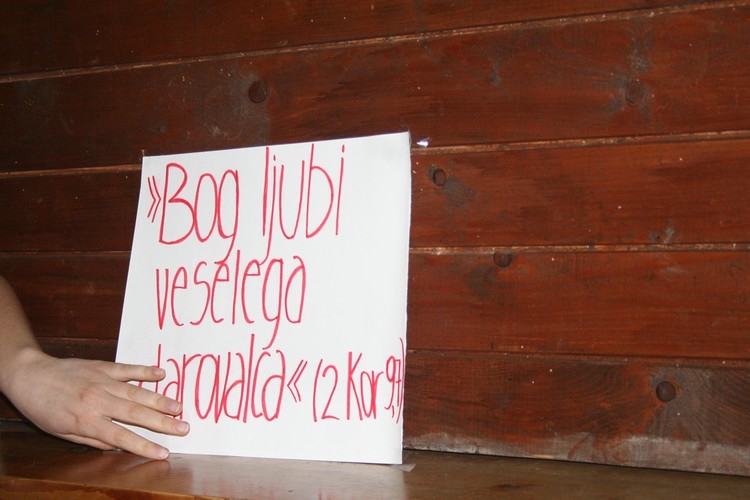 »Bog ljubi
veselega
darovalca« (2 Kor 9,7)